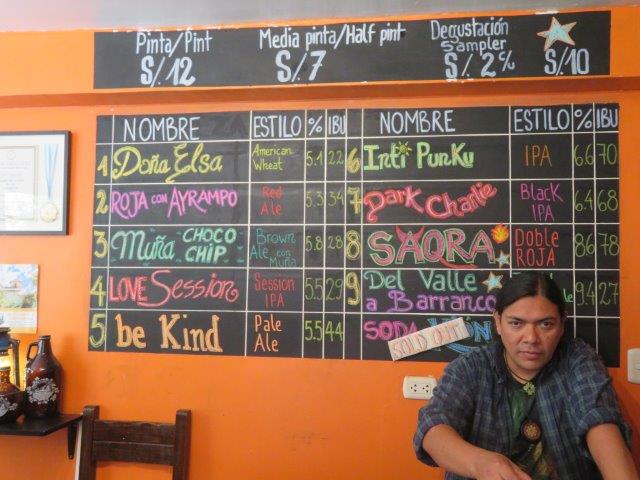 Pinta/Pint
S/.12
Media pinta/Half pint
S/.7
Degustación
Sampler
S/.2 ⁵⁰
S/.10
NOMBRE ESTILO % IBU
1 Doña Elsa American Wheat 5.1 22
2 ROJA con AYRAMPO Red Ale 5.3 34
3 Muña CHOCO CHIP Brown Ale con Muña 5.8 28
4 LOVE Session Session IPA 5.5 29
5 be Kind Pale Ale 5.5 44
NOMBRE ESTILO % IBU
6 Inti Punku IPA 6.6 70
7 Dark Charlie Black IPA 6.4 68
8 SAQRA Doble ROJA 8.6 78
9 Del Valle a Barranco 9.4 27
SODA
SOLD OUT